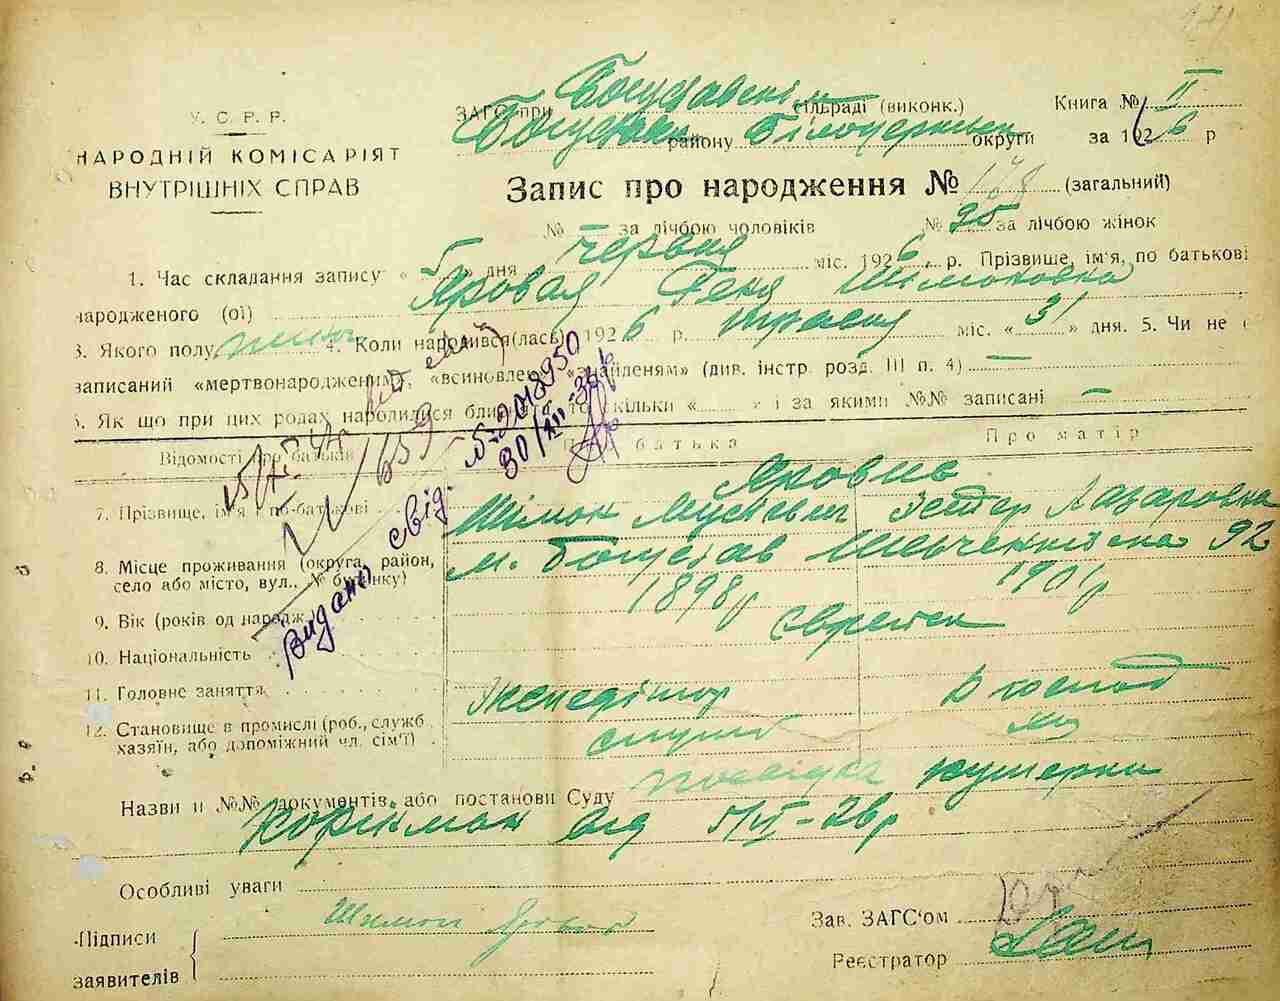 У. С. Р. Р.
НАРОДНІЙ КОМІСАРІЯТ
ВНУТРІШНІХ СПРАВ
ЗАГС при Богуславській сільраді (виконк.) Книга № II
Богуслав району Білоцерків округи за 1926 р
Запис про народження № 178 (загальний)
№ за лічбою чоловіків № 95 за лічбою жінок
1. Час складання запису « 5 » дня червня міс. 1926, р. Прізвище, ім'я, по батькові
народженого (ої) Яровая Геня Шимоновна
3. Якого полу жин 4. Коли народився(лась) 1926 р. травня міс. « 31 » дня. 5. Чи не є
записаний «мертвонародженим», «всиновлен» «знайденям» (див. інстр. розд. III п. 4) —
6. Як що при цих родах народилися близн то скільки « » і за якими №№ записані —
Відомості про батьків Про батька Про матір
Яровые
7. Прізвище, ім'я і по-батькові Шимон Мусієвич Эстер Лазаровна
8. Місце проживання (округа, район, село або місто, вул., № будинку) м. Богуслав 92
9. Вік (років од народж.) 1898 р 1901 р
10. Національність евреи
11. Головне заняття Экспедітор В господ
12. Становище в промислі (роб., служб хазяїн, або допоміжний чл. сім'ї)
служ
Назви и №№ документів або постанови Суду посвідка кушерки
від 5/VI-26 р
Особливі уваги
Підписи
заявителів
Шимон Яровой
Зав. ЗАГС'ом
Реєстратор
1659
видано свід. № 2018950
30/XII-36 р